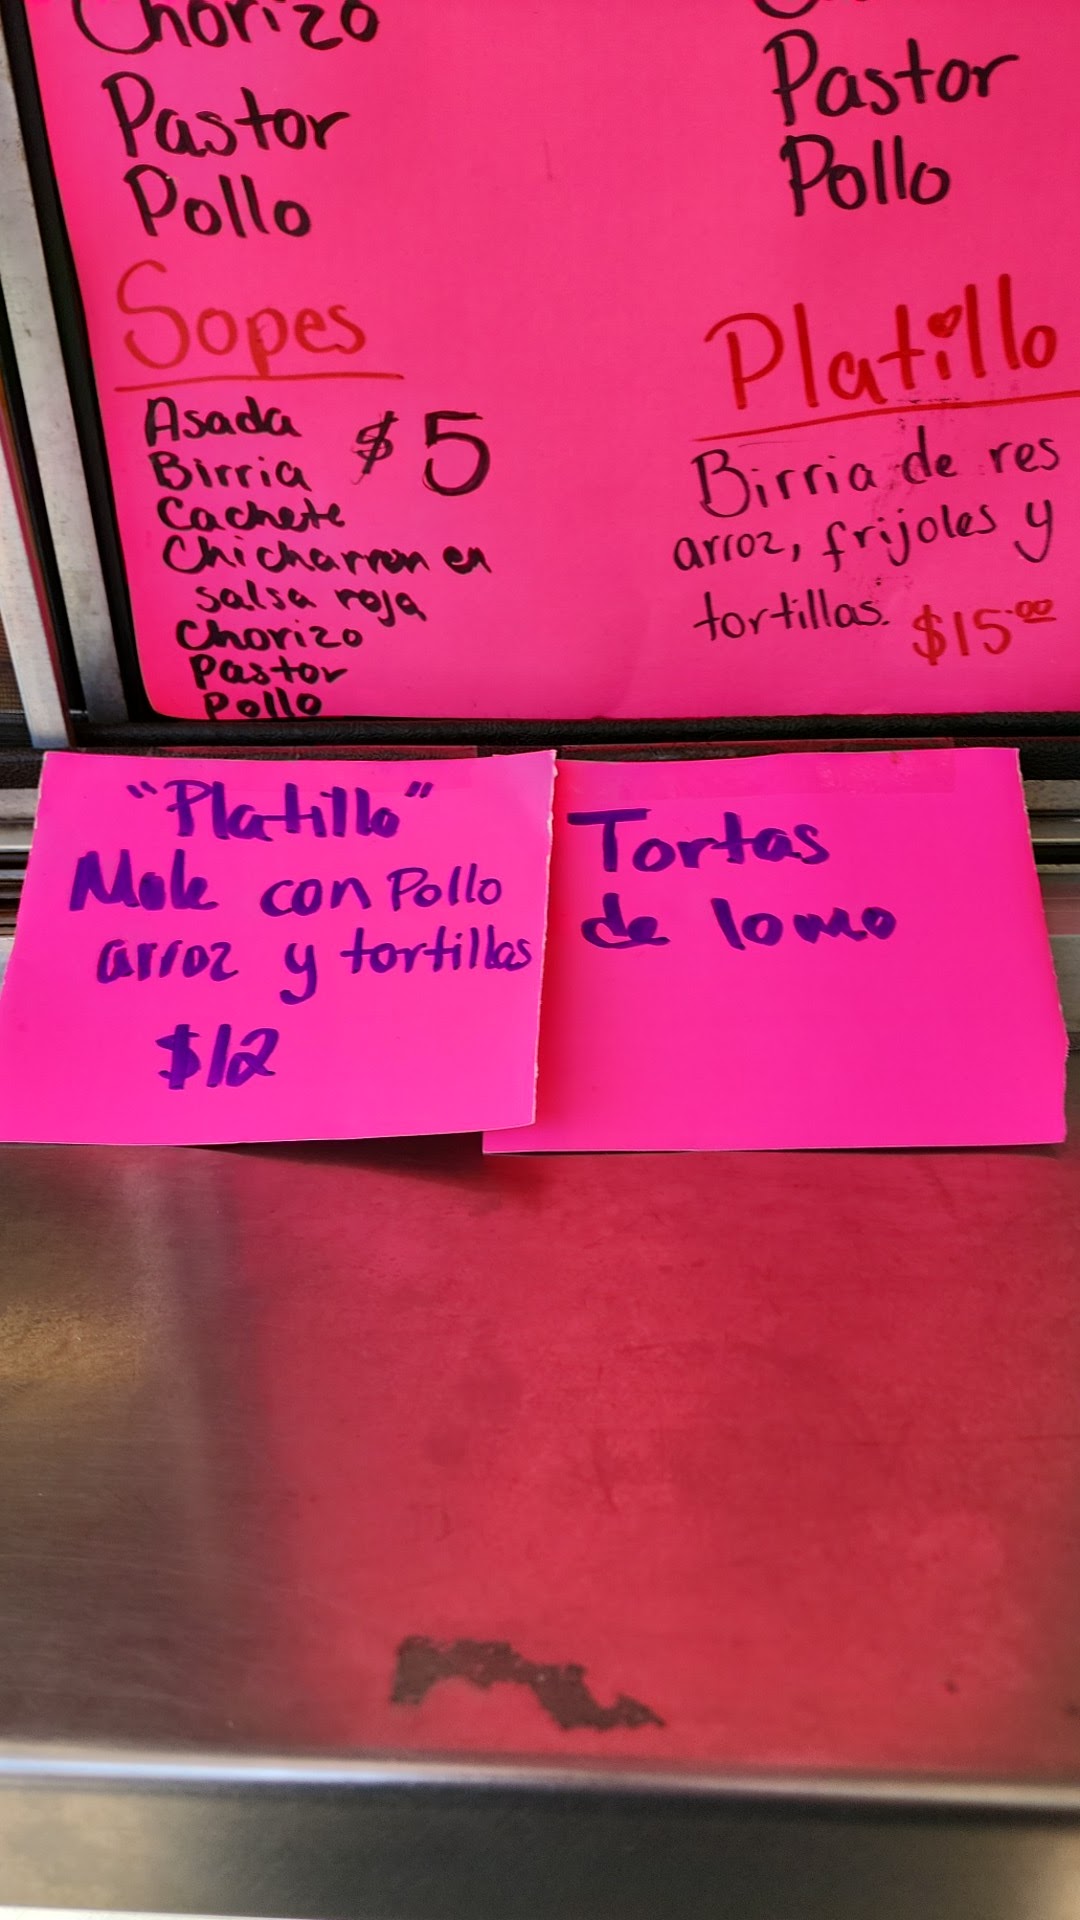 Chorizo
Pastor
Pollo
Sopes
Asada
$5
Birria
Cachete
Chicharron en
salsa roja
Chorizo
Pastor
Pollo
Pastor
Pollo
Platillo
Birria de res
arroz, frijoles y
tortillas. $15.00
"Platillo"
Mole con Pollo
arroz y tortillas
$12
Tortas
de lomo